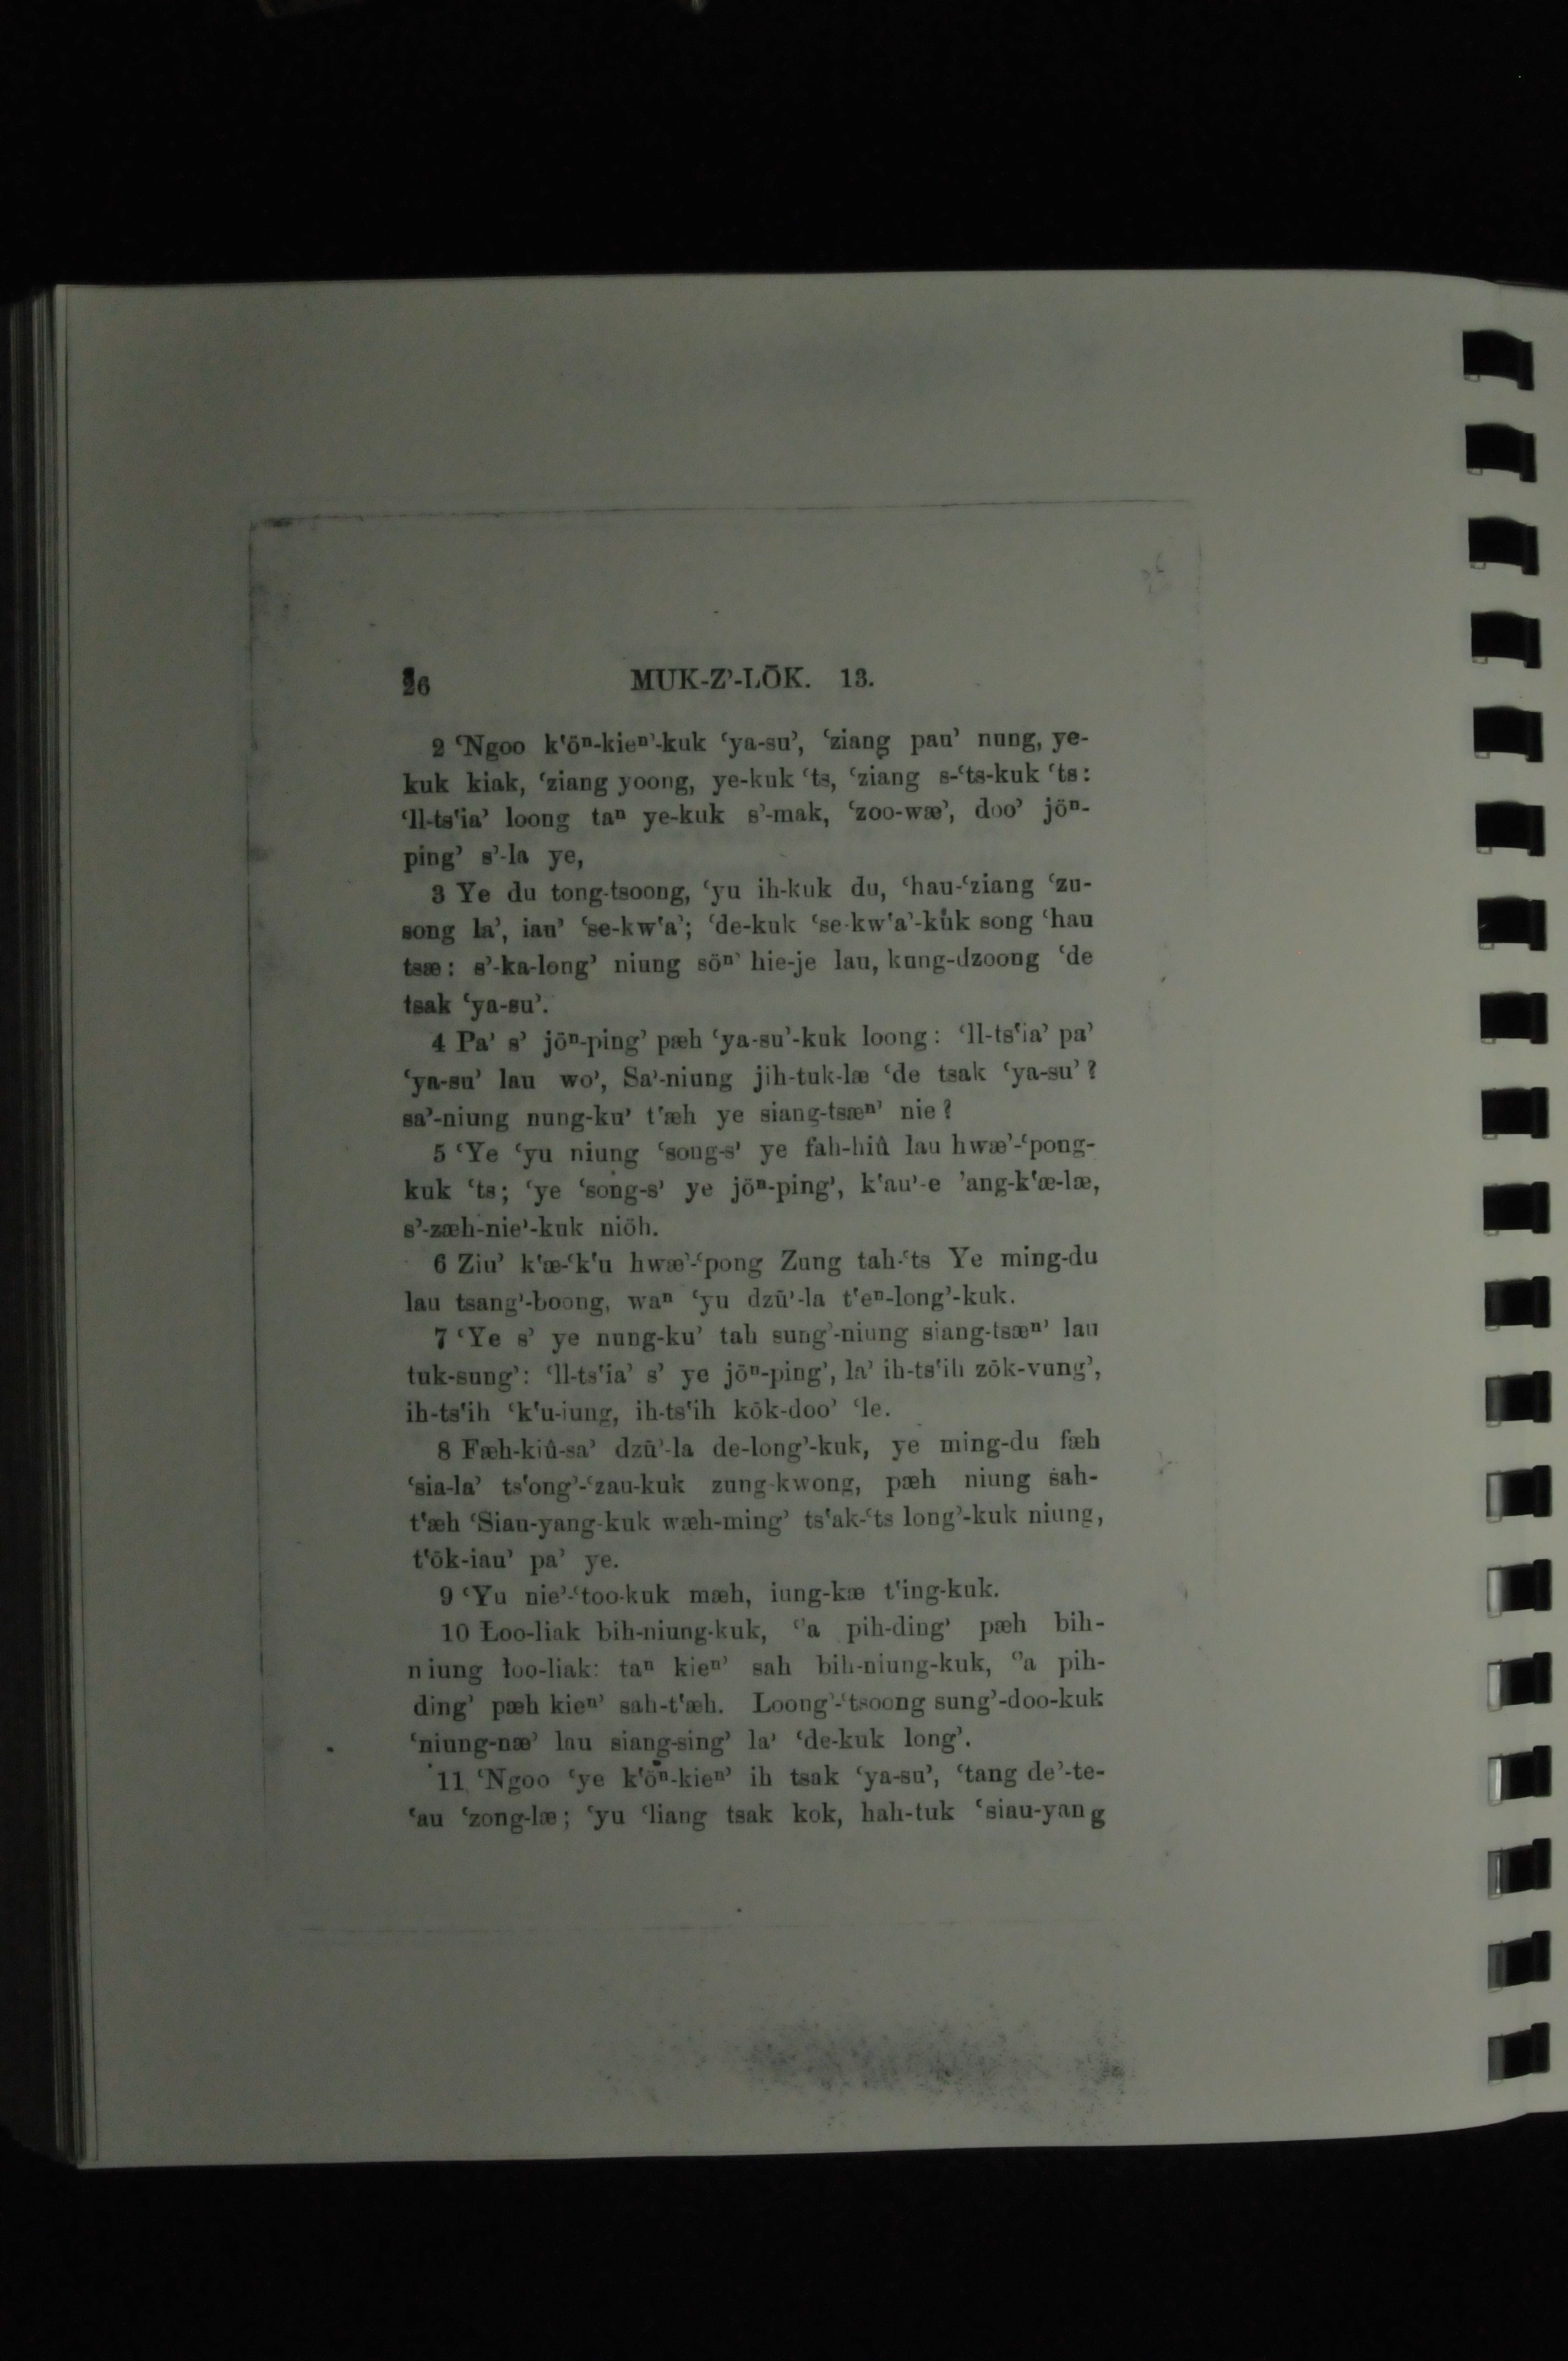 26 MUK-Z’-LŌK. 13.
2 ‘Ngoo k‘öⁿ-kieⁿ’-kuk ‘ya-su’, ‘ziang pau’ nung, ye-
kuk kiak, ‘ziang yoong, ye-kuk ‘ts, ‘ziang s-‘ts-kuk ‘ts:
‘ll-ts‘ia’ loong taⁿ ye-kuk s’-mak, ‘zoo-wæ’, doo’ jöⁿ-
ping’ s’-la ye,
3 Ye du tong-tsoong, ‘yu ih-kuk du, ‘hau-‘ziang ‘zu-
song la’, iau’ ‘se-kw‘a’; ‘de-kuk ‘se-kw‘a’-kuk song ‘hau
tsæ: s’-ka-long’ niung söⁿ’ hie-je lau, kung-dzoong ‘de
tsak ‘ya-su’.
4 Pa’ s’ jöⁿ-ping’ pæh ‘ya-su’-kuk loong: ‘ll-ts‘ia’ pa’
‘ya-su’ lau wo’, Sa’-niung jih-tuk-læ ‘de tsak ‘ya-su’?
sa’-niung nung-ku’ t‘æh ye siang-tsæⁿ’ nie?
5 ‘Ye ‘yu niung ‘song-s’ ye fah-hiû lau hwæ’-‘pong-
kuk ‘ts; ‘ye ‘song-s’ ye jöⁿ-ping’, k‘au’-e ’ang-k‘æ-læ,
s’-zæh-nie’-kuk niöh.
6 Ziu’ k‘æ-‘k‘u hwæ’-‘pong Zung tah-‘ts Ye ming-du
lau tsang’-boong, waⁿ ‘yu dzū’-la t‘eⁿ-long’-kuk.
7 ‘Ye s’ ye nung-ku’ tah sung’-niung siang-tsæⁿ’ lau
tuk-sung’: ‘ll-ts‘ia’ s’ ye jöⁿ-ping’, la’ ih-ts‘ih zōk-vung’,
ih-ts‘ih ‘k‘u-iung, ih-ts‘ih kōk-doo’ ‘le.
8 Fæh-kiû-sa’ dzū’-la de-long’-kuk, ye ming-du fæh
‘sia-la’ ts‘ong’-‘zau-kuk zung-kwong, pæh niung sah-
t‘æh ‘Siau-yang-kuk wæh-ming’ ts‘ak-‘ts long’-kuk niung,
t‘ōk-iau’ pa’ ye.
9 ‘Yu nie’-‘too-kuk mæh, iung-kæ t‘ing-kuk.
10 Loo-liak bih-niung-kuk, ‘’a pih-ding’ pæh bih-
niung loo-liak: taⁿ kieⁿ’ sah bih-niung-kuk, ‘’a pih-
ding’ pæh kieⁿ’ sah-t‘æh. Loong’-‘tsoong sung’-doo-kuk
‘niung-næ’ lau siang-sing’ la’ ‘de-kuk long’.
11 ‘Ngoo ‘ye k‘öⁿ-kieⁿ’ ih tsak ‘ya-su’, ‘tang de’-te-
‘au ‘zong-læ; ‘yu ‘liang tsak kok, hah-tuk ‘siau-yang